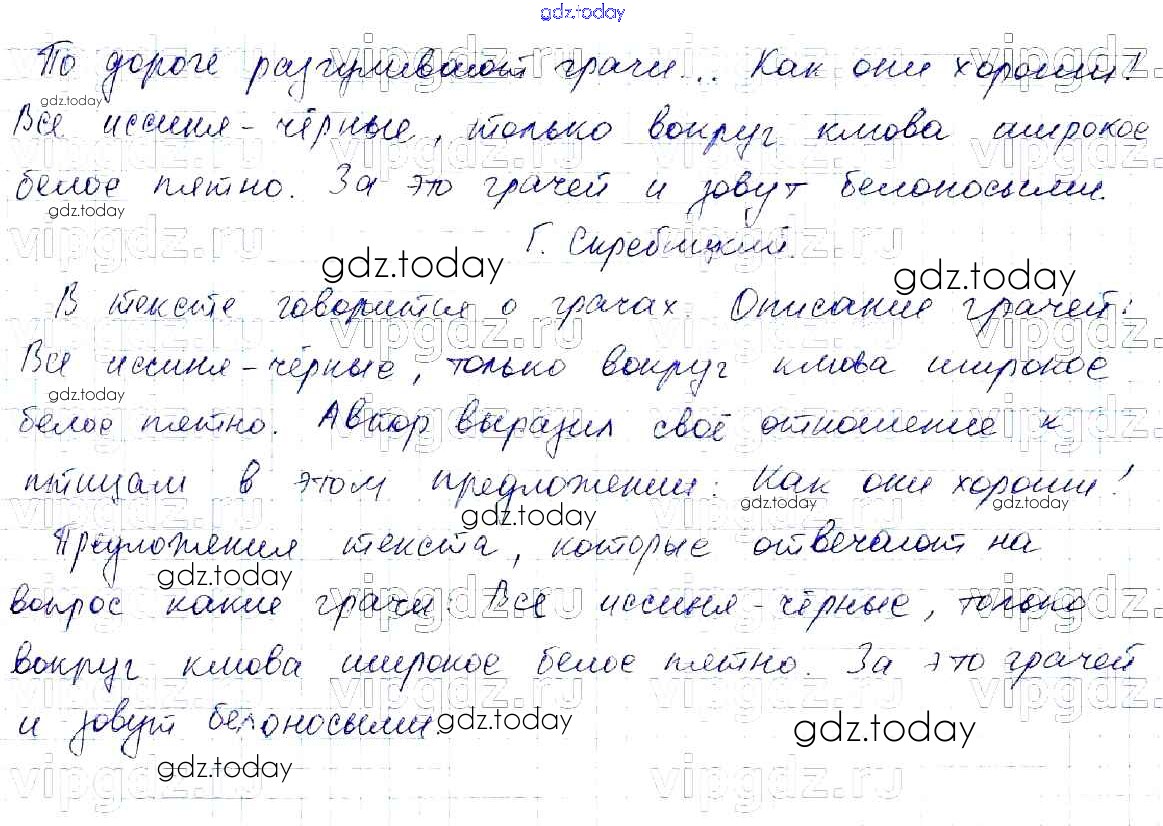 gdz.today
По дороге разгуливают грачи... Как они хороши!
gdz.today
Все иссиня-чёрные, только вокруг клюва широкое
белое пятно. За это грачей и зовут белоносыми.
gdz.today
Г. Скребицкий.
gdz.today gdz.today
В тексте говорится о грачах. Описание грачей:
Все иссиня-чёрные, только вокруг клюва широкое
gdz.today
белое пятно. Автор выразил своё отношение к
птицам в этом предложении: Как они хороши!
gdz.today gdz.today gdz.today
Предложения текста, которые отвечают на
gdz.today
вопрос какие грачи: Все иссиня-чёрные, только
вокруг клюва широкое белое пятно. За это грачей
и зовут белоносыми.
gdz.today gdz.today
gdz.today
vipgdz.ru